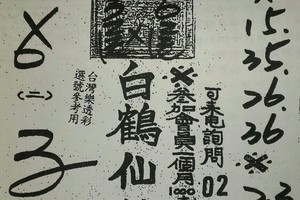 15.
35.
26.
36
※
23
可來電詢問
02
※參加會員一個月
1000
白鶴仙
台灣樂透彩
選號參考用
(二)
3